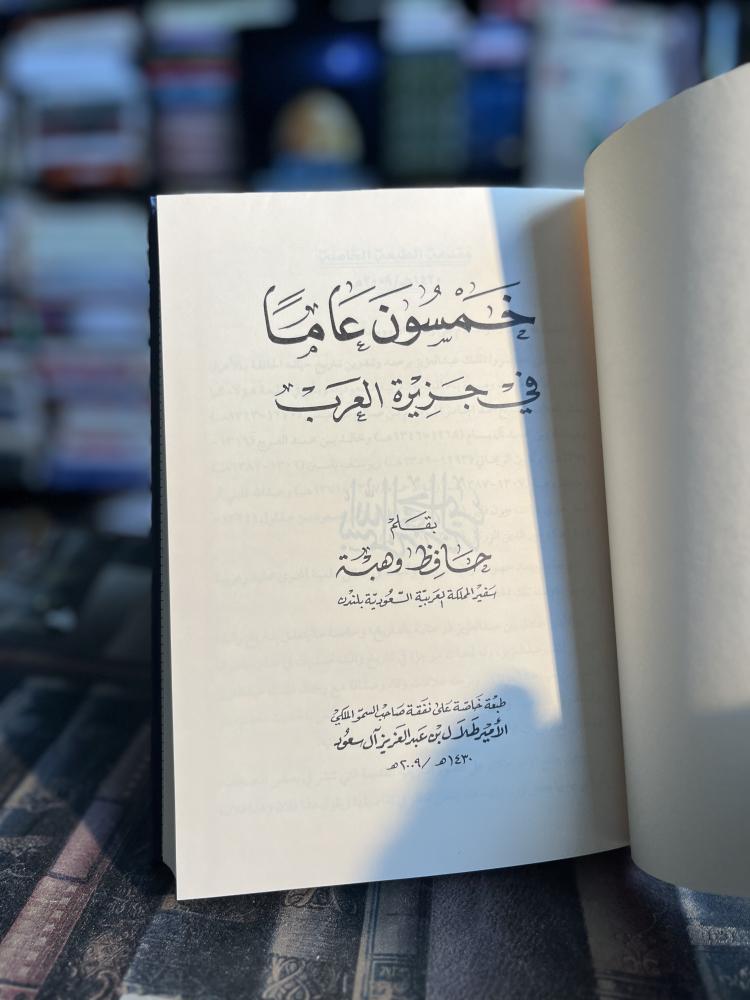 خَمْسُونَ عَامًا
في جَزِيرَة العَرَبْ
بقَلم
حَافِظ وَهبَة
سَفير المملكة العَربيّة السّعُوديّة بلندن
طبعَة خَاصّة عَلى نفَقة صَاحب السّمو الملكي
الأميْر طَلَال بْن عَبد العَزيز آل سعُود
١٤٣٠هـ /٢٠٠٩هـ